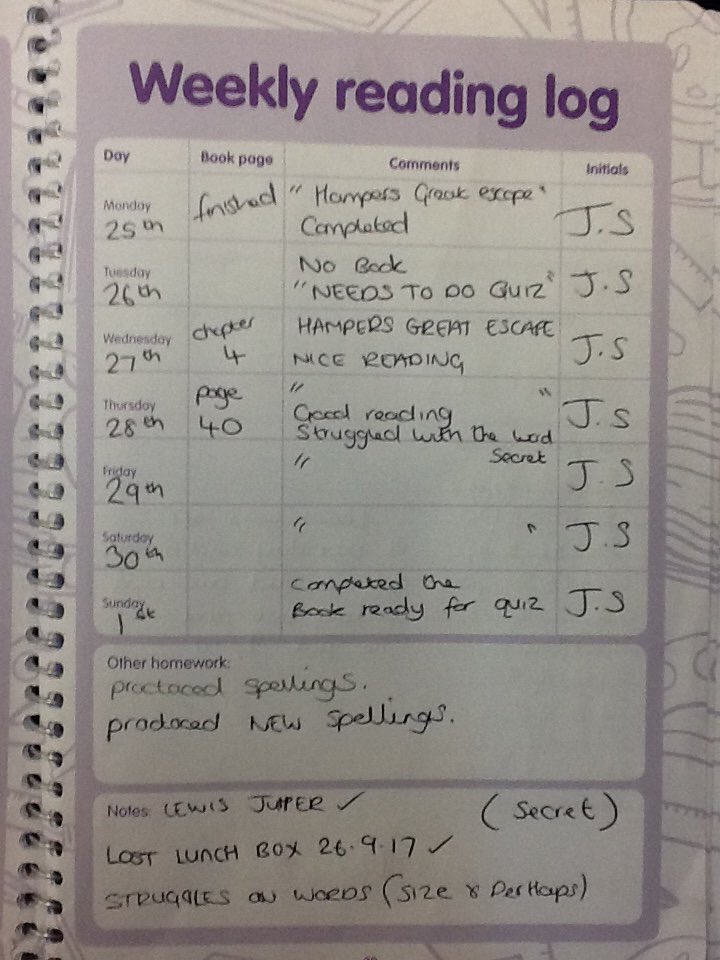 Weekly reading log
Day Book page Comments Initials
Monday 25th finished "Hampers Great escape" Completed J.S
Tuesday 26th No Book "NEEDS TO DO QUIZ" J.S
Wednesday 27th chapter 4 HAMPERS GREAT ESCAPE NICE READING J.S
Thursday 28th page 40 " " Good reading Struggled with the word Secret J.S
Friday 29th " J.S
Saturday 30th " " J.S
Sunday 1st completed the Book ready for quiz J.S
Other homework:
practaced spellings.
practaced NEW spellings.
Notes: LEWIS JUMPER ✓ (Secret)
LOST LUNCH BOX 26.9.17 ✓
STRUGGLES ON WORDS (Size & Perhaps)